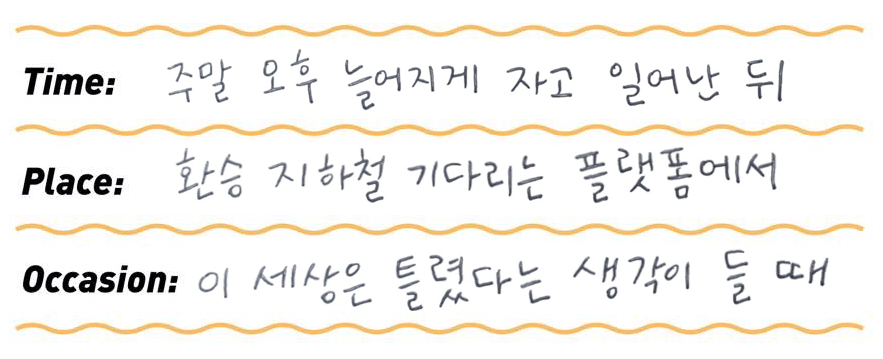 Time: 주말 오후 늘어지게 자고 일어난 뒤
Place: 환승 지하철 기다리는 플랫폼에서
Occasion: 이 세상은 틀렸다는 생각이 들 때